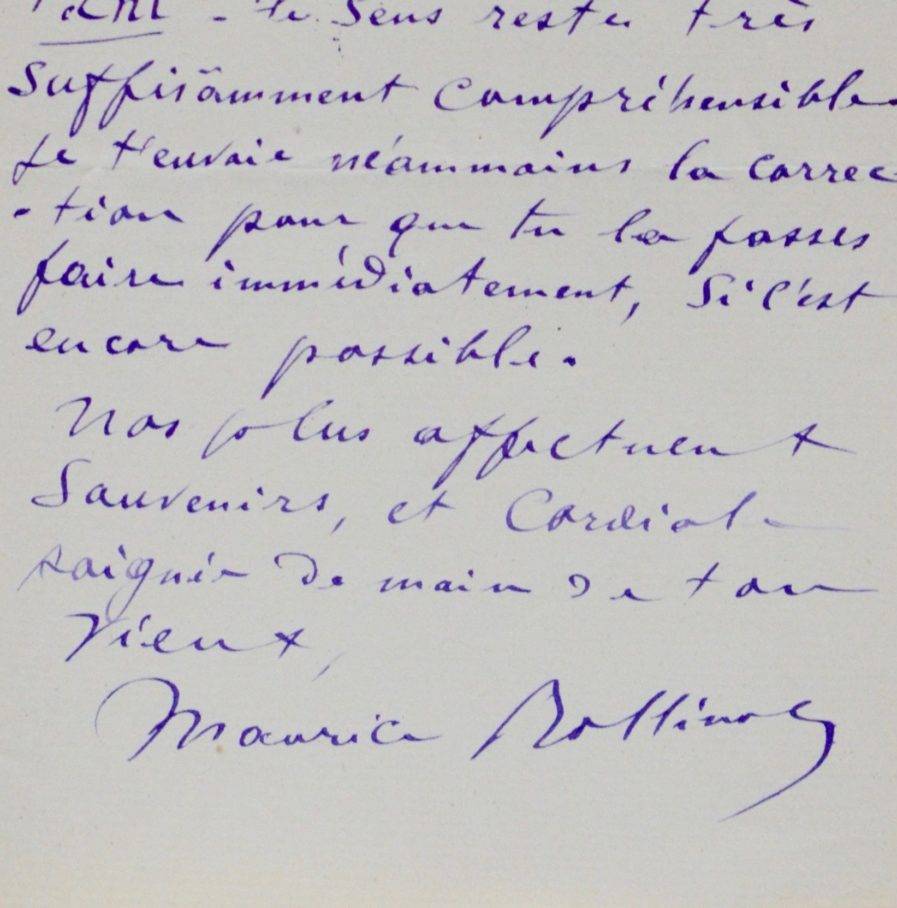 - le Sens reste très
Suffisamment compréhensible.
Je t'envoie néammoins la correc
-tion pour que tu la fasses
faire immédiatement, Si c'est
encore possible.
Nos plus affectueux
Souvenirs, et Cordiale
poignée de main de ton
Vieux,
Maurice Rollinat